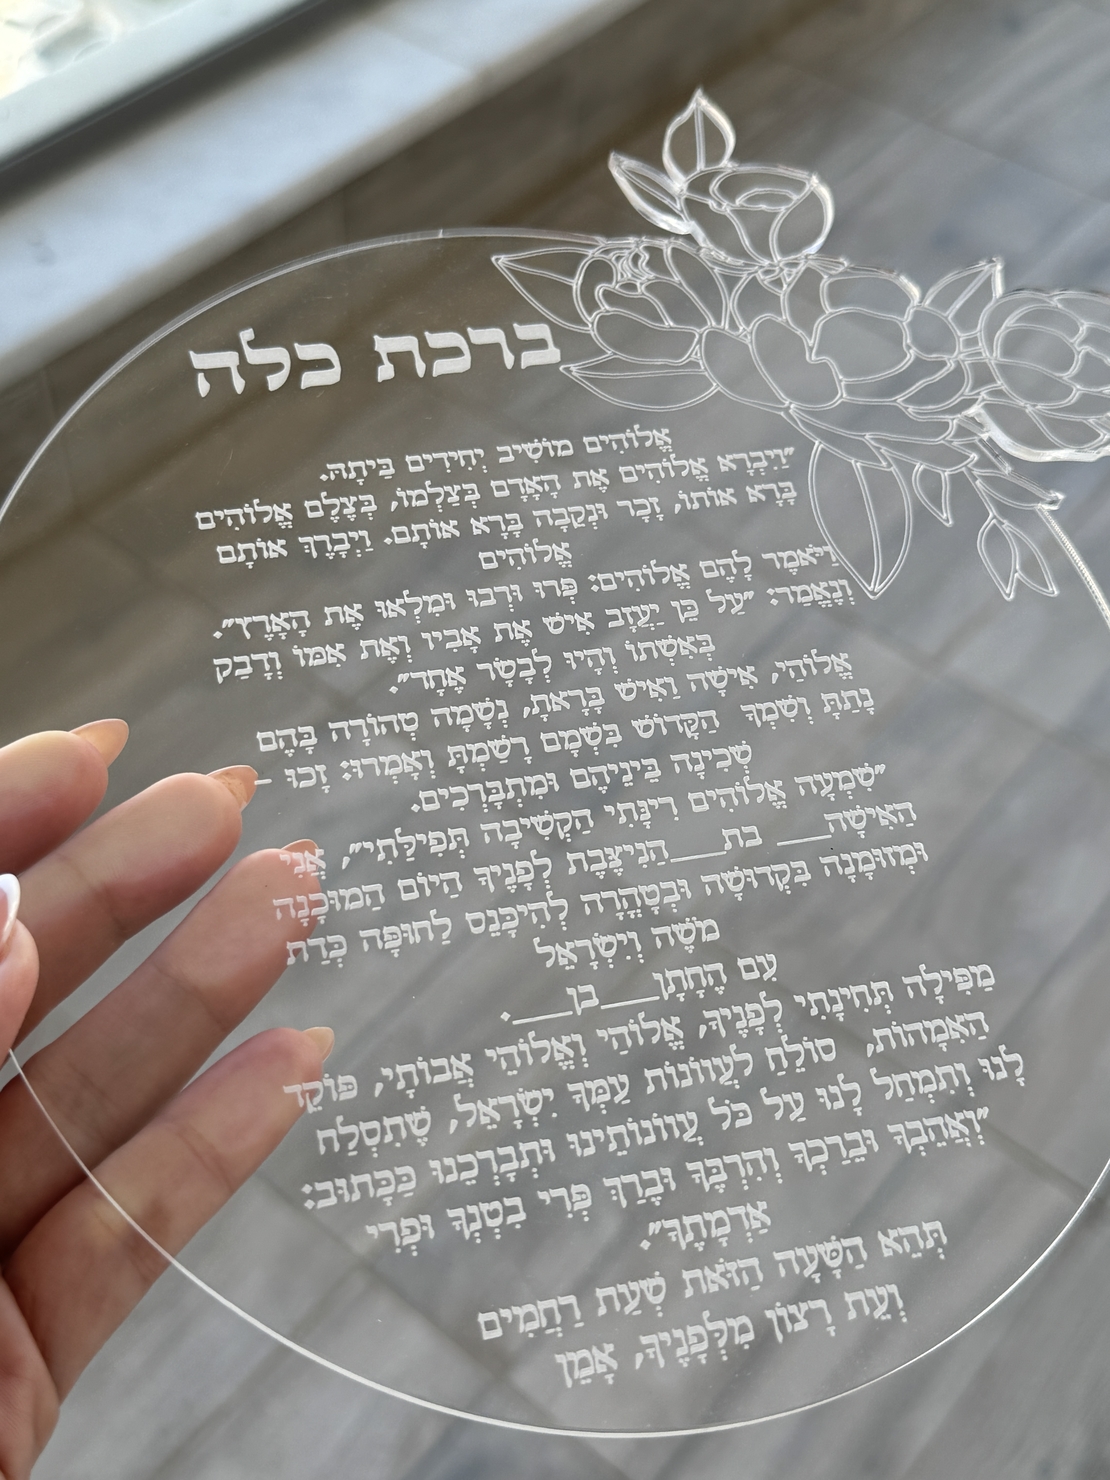 ברכת כלה
אֱלוֹהִים מוֹשִׁיב יְחִידִים בַּיְתָה.
"וַיִּבְרָא אֱלוֹהִים אֶת הָאָדָם בְּצַלְמוֹ, בְּצֶלֶם אֱלוֹהִים
בָּרָא אוֹתוֹ, זָכָר וּנְקֵבָה בָּרָא אוֹתָם. וַיְבָרֶךְ אוֹתָם
אֱלוֹהִים
וַיֹּאמֶר לָהֶם אֱלוֹהִים: פְּרוּ וּרְבוּ וּמִלְאוּ אֶת הָאָרֶץ".
וְנֶאֱמַר: "עַל כֵּן יַעֲזָב אִישׁ אֶת אָבִיו וְאֶת אִמּוֹ וְדָבַק
בְּאִשְׁתּוֹ וְהָיוּ לְבָשָׂר אֶחָד".
אֱלוֹהַי, אִישָׁה וַאִישׁ בָּרָאתָ, נְשָׁמָה טְהוֹרָה בָּהֶם
נָתַתָּ וְשִׁמְךָ הַקָּדוֹשׁ בִּשְׁמָם רָשַׁמְתָּ וְאָמְרוּ: זָכוּ –
שְׁכִינָה בֵּינֵיהֶם וּמִתְבָּרְכִים.
"שִׁמְעָה אֱלוֹהִים רִינָּתִי הַקְשִׁיבָה תְּפִילָּתִי", אֲנִי
הָאִישָׁה____ בת____הַנִּיצֶּבֶת לְפָנֶיךָ הַיּוֹם הַמּוּכָנָה
וּמְזוּמָּנָה בִּקְדוּשָּׁה וּבְטָהֳרָה לְהִיכָּנֵס לַחוּפָּה כְּדַת
מֹשֶׁה וְיִשְׂרָאֵל
עִם הֶחָתָן____בן____.
מַפִּילָה תְּחִינָתִי לְפָנֶיךָ, אֱלוֹהַי וֶאֱלוֹהֵי אֲבוֹתַי, פּוֹקֵד
הָאִמָּהוֹת, סוֹלֵחַ לַעֲוונוֹת עַמְּךָ יִשְׂרָאֵל, שֶׁתִּסְלַח
לָנוּ וְתִמְחַל לָנוּ עַל כֹּל עֲוונוֹתֵינוּ וּתְבָרְכֵנוּ כַּכָּתוּב:
"וַאֲהֵבְךָ וּבֵרַכְךָ וְהִרְבֶּךָ וּבֶרַךְ פְּרִי בִטְנְךָ וּפְרִי
אַדְמָתֶךָ".
תְּהֵא הַשָּׁעָה הַזֹּאת שְׁעַת רַחֲמִים
וְעֵת רָצוֹן מִלְּפָנֶיךָ, אָמֵן